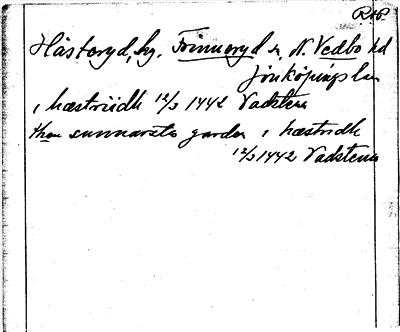 RAP.
Hästeryd, by. Frinnaryd sn, N. Vedbo hd
Jönköpings län
i hæstriidh 12/3 1442 Vadstena
then sunnarsto garden i hæstridh
12/3 1442 Vadstena